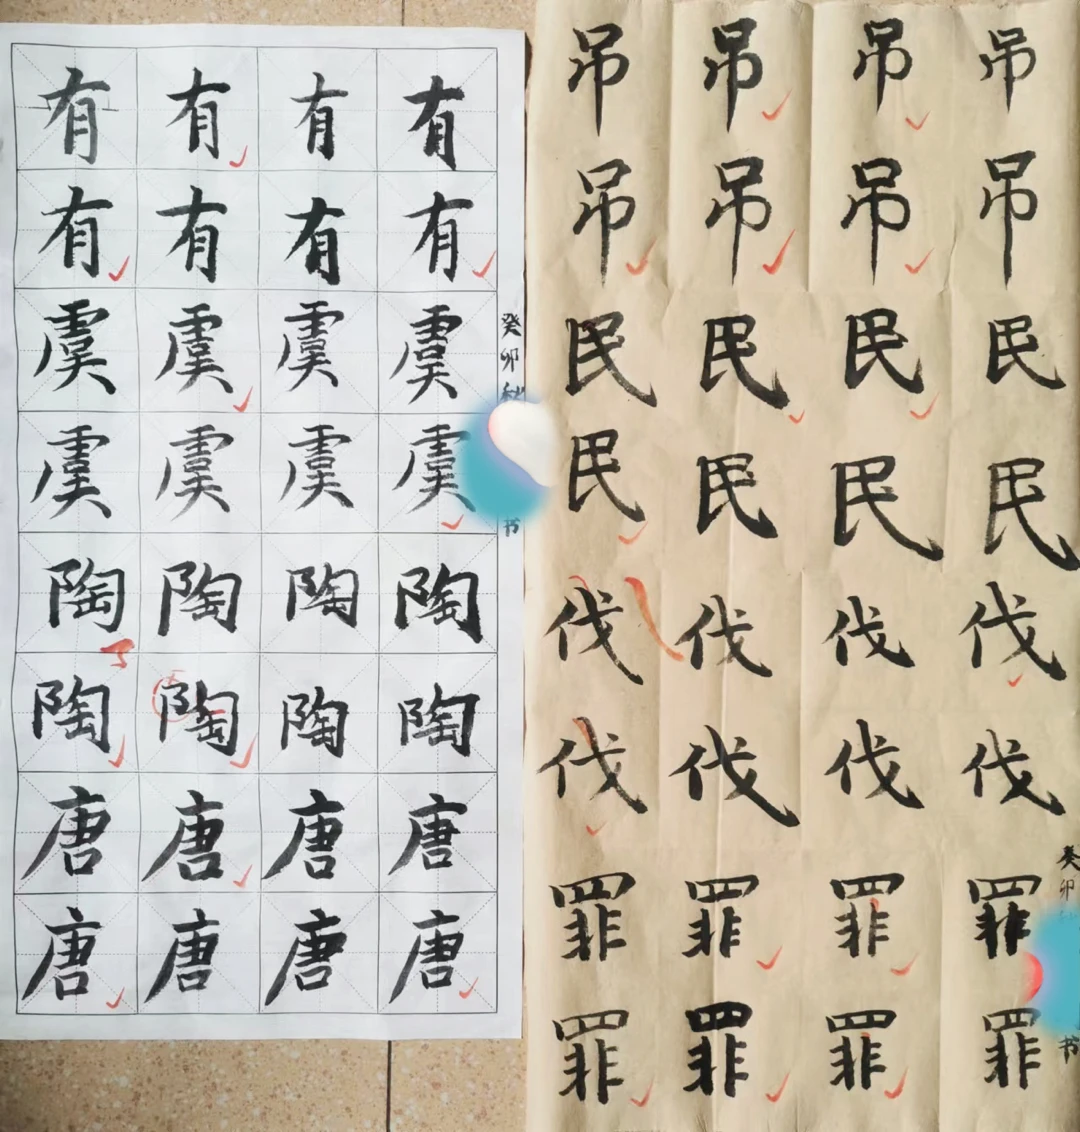 有有有有
有有有有
虞虞虞虞
虞虞虞虞
陶陶陶陶
陶陶陶陶
唐唐唐唐
唐唐唐唐
癸卯秋
书
吊吊吊吊
吊吊吊吊
民民民民
民民民民
伐伐伐伐
伐伐伐伐
罪罪罪罪
罪罪罪罪
癸卯
书